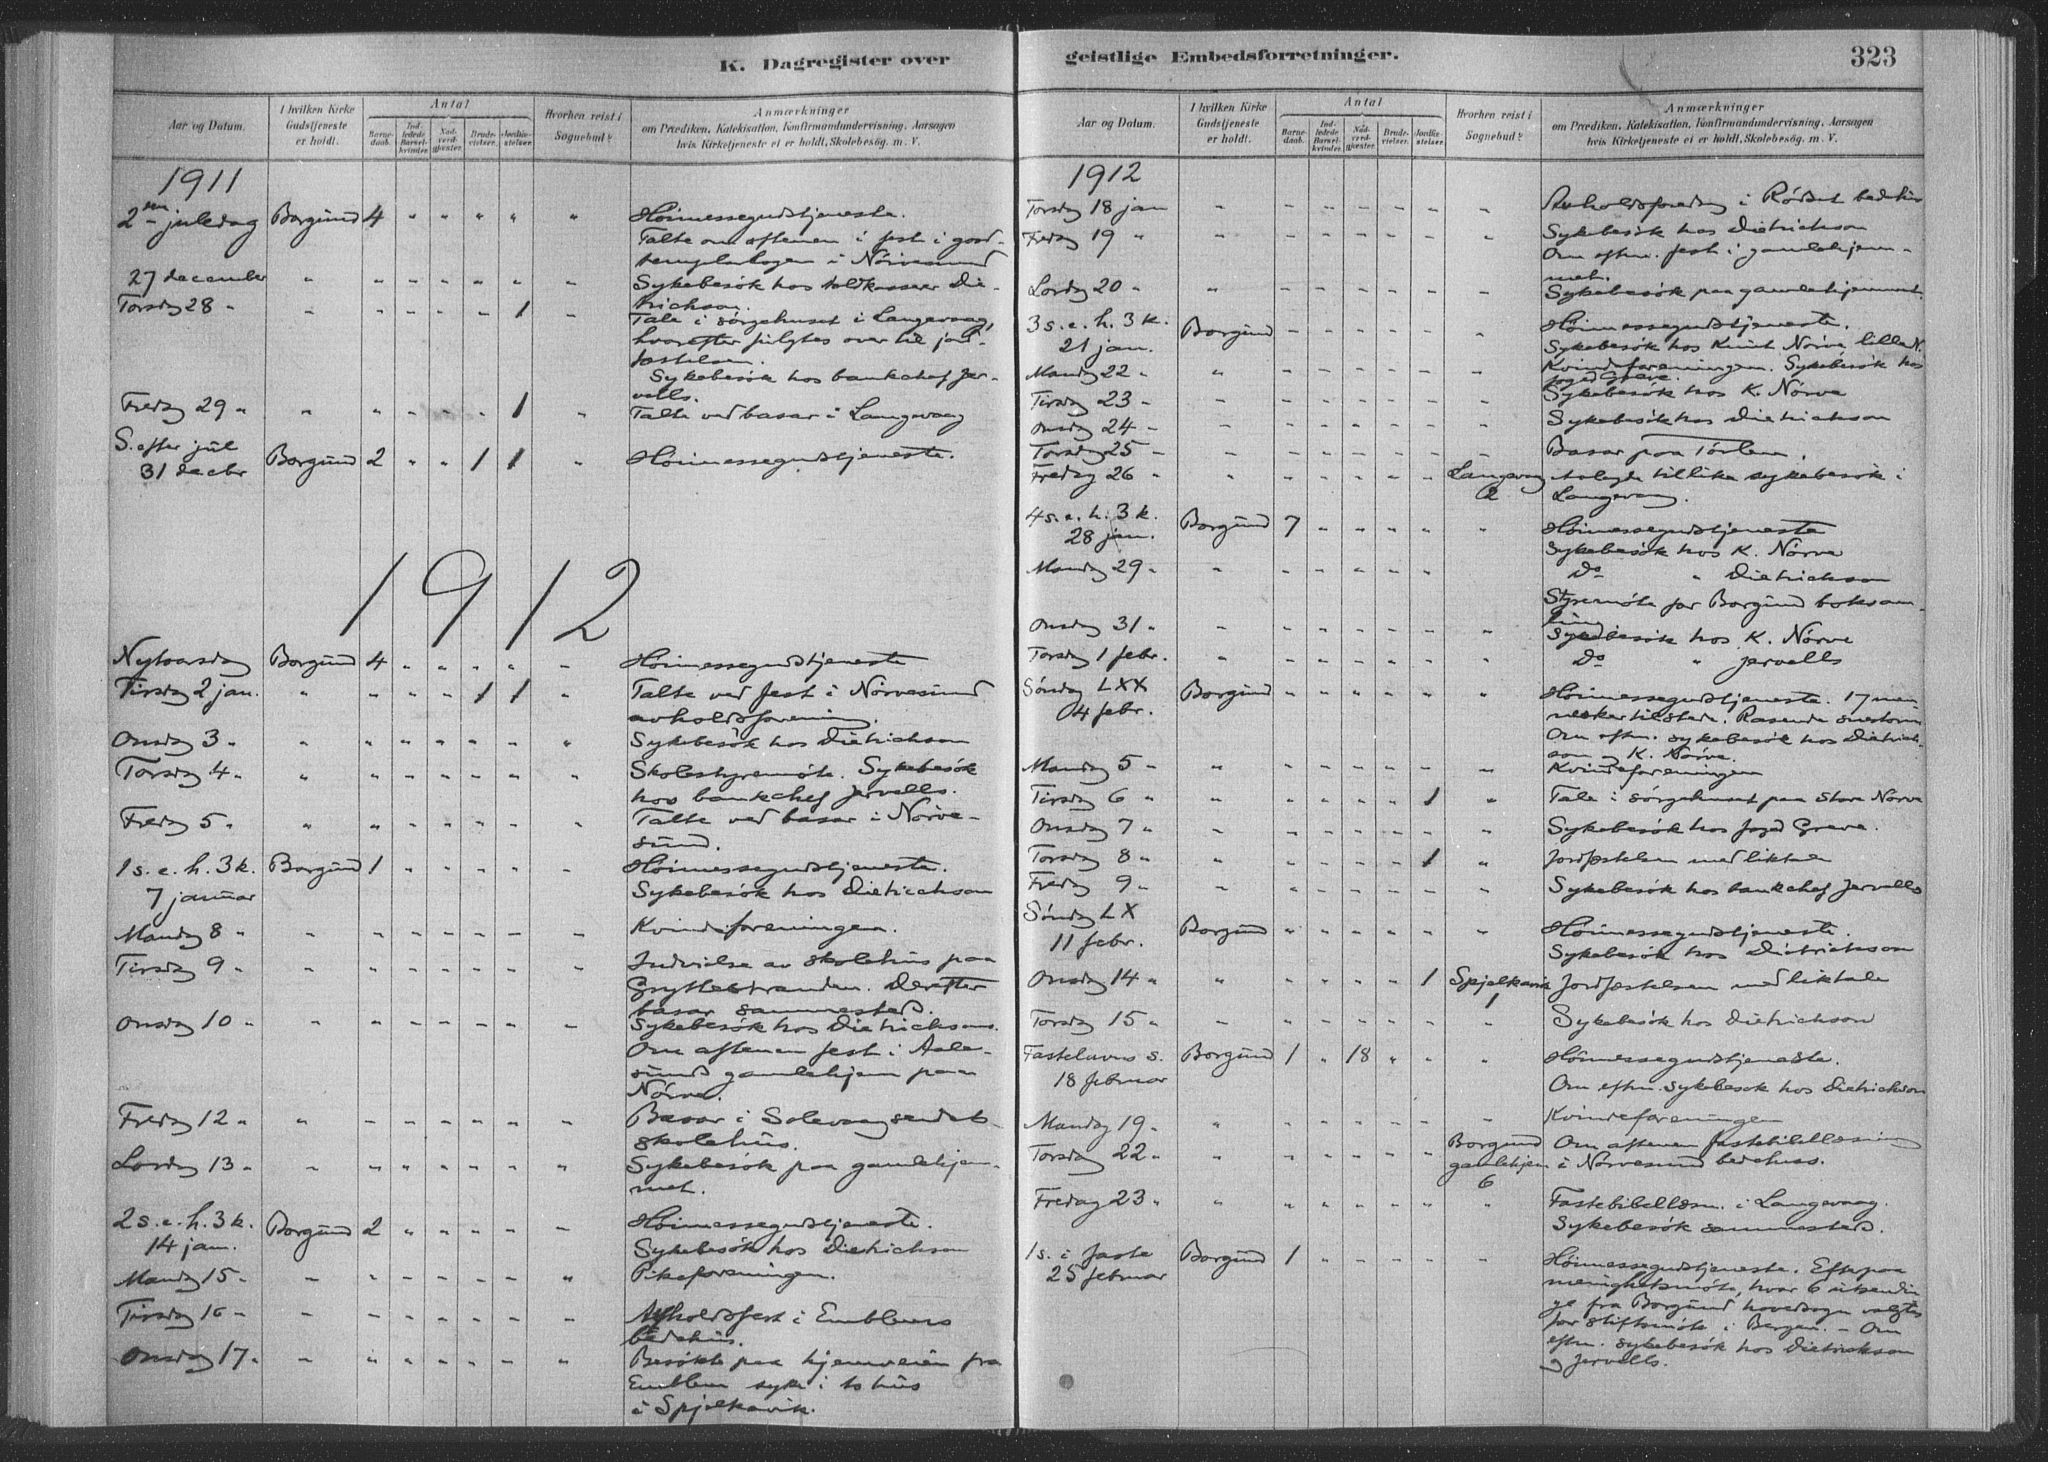 K. Dagregister over
Aar og Datum.
I hvilken Kirke Gudstjeneste er holdt.
Antal
Barnedaab.
Indledede Barselkvinder.
Nadverdgjæster.
Brudevielser.
Jordfæstelser.
Hvorhen reist i Sognebud?
Anmærkninger
om Prædiken, Katekisation, Konfirmandundervisning, Aarsagen
hvis Kirketjeneste ei er holdt, Skolebesøg. m. V.
1911
2den juledag Borgund 4 " " " " " Høimessegudstjeneste.
Talte om aftenen i fest i good-
templarlogen i Nørvesund
27 december " " " " " " " Sykebesøk hos toldkasserer Die-
trichson.
Torsdag 28 " " " " " " 1 " Tale i sørgehuset i Langevaag,
hvorefter fulgtes over til jord-
fæstelsen.
Sykebesøk hos bankchef Jer-
vells.
Fredag 29 " " " " " " 1 " Talte ved basar i Langevaag
S. efter jul
31 decbr Borgund 2 " " 1 1 " Høimessegudstjeneste.
1912
Nytaarsdag Borgund 4 " " " " " Høimessegudstjeneste
Tirsdag 2 jan. " " " " 1 1 " Talte ved fest i Nørvesund
avholdsforening.
Onsdag 3 " " " " " " " " Sykebesøk hos Dietrichson
Torsdag 4 " " " " " " " " Skolestyremøte. Sykebesøk
hos bankchef Jervells.
Fredag 5 " " " " " " " " Talte ved basar i Nørve-
sund.
1 s. e. h. 3 k. Borgund 1 " " " " " Høimessegudstjeneste.
7 januar Sykebesøk hos Dietrichson
Mandag 8 " " " " " " " " Kvindeforeningen.
Tirsdag 9 " " " " " " " " Indvielse av skolehus paa
Gryttestranden. Derefter
basar sammesteds.
Onsdag 10 " " " " " " " " Sykebesøk hos Dietrichsons.
Om aftenen fest i Aale-
sunds gamlehjem paa
Nørve.
Fredag 12 " " " " " " " " Basar i Solevaagseidets
skolehus.
Lørdag 13 " " " " " " " " Sykebesøk paa gamlehjem-
met.
2 s. e. h. 3 k. Borgund 2 " " " " " Høimessegudstjeneste.
14 jan. Sykebesøk hos Dietrichson
Mandag 15 " " " " " " " " Pikeforeningen.
Tirsdag 16 " " " " " " " " Avholdsfest i Emblems
bedehus.
Onsdag 17 " " " " " " " " Besøkte paa hjemveien fra
Emblem syke i to hus
i Spjelkavik.
geistlige Embedsforretninger.
323
Aar og Datum.
I hvilken Kirke Gudstjeneste er holdt.
Antal
Barnedaab.
Indledede Barselkvinder.
Nadverdgjæster.
Brudevielser.
Jordfæstelser.
Hvorhen reist i Sognebud?
Anmærkninger
om Prædiken, Katekisation, Konfirmandundervisning, Aarsagen
hvis Kirketjeneste ei er holdt, Skolebesög. m. V.
1912
Torsdag 18 jan " " " " " " " Avholdsforedrag i Rødset bedehus
Fredag 19 " " " " " " " " Sykebesøk hos Dietrichson
Om eftm. fest i gamlehjem-
met.
Lørdag 20 " " " " " " " " Sykebesøk paa gamlehjemmet.
3 s. e. h. 3 k. Borgund " " " " " " Høimessegudstjeneste.
21 jan. Sykebesøk hos Knut Nørve, lille N.
Mandag 22 " " " " " " " " Kvindeforeningen. Sykebesøk hos
foged Greve.
Tirsdag 23 " " " " " " " " Sykebesøk hos K. Nørve
Onsdag 24 " " " " " " " " Sykebesøk hos Dietrichson
Torsdag 25 " " " " " " " " Basar paa Tørlen.
Fredag 26 " " " " " " " Langevaag Avlagde tillike sykebesøk i
2 Langevaag.
4 s. e. h. 3 k. Borgund 7 " " " " " Høimessegudstjeneste
28 jan. Sykebesøk hos K. Nørve
Mandag 29 " " " " " " " Do " Dietrichson
Styremøte for Borgund boksam-
ling
Onsdag 31 " " " " " " " " Sykebesøk hos K. Nørve
Torsdag 1 febr. " " " " " " " Do " Jervells
Søndag LXX Borgund " " " " " " Høimessegudstjeneste. 17 men-
4 febr. nesker tilstede. Rasende snestorm
Om eftm. sykebesøk hos Dietrich-
son og K. Nørve.
Mandag 5 " " " " " " " " Kvindeforeningen
Tirsdag 6 " " " " " " 1 " Tale i sørgehuset paa store Nørve
Onsdag 7 " " " " " " " " Sykebesøk hos foged Greve.
Torsdag 8 " " " " " " 1 " Jordfæstelsen med liktale
Fredag 9 " " " " " " " " Sykebesøk hos bankchef Jervells
Søndag LX
11 febr. Borgund " " " " " " Høimessegudstjeneste.
Sykebesøk hos Dietrichson
Onsdag 14 " " " " " " 1 Spjelkavik Jordfæstelsen med liktale
1
Torsdag 15 " " " " " " " " Sykebesøk hos Dietrichson
Fastelavns s. Borgund 1 " 18 " " " Høimessegudstjeneste.
18 februar Om eftm. sykebesøk hos Dietrichson
Mandag 19 " " " " " " " " Kvindeforeningen
Torsdag 22 " " " " " " " Borgund Om aftenen fastebibellæsning
gamlehjem i Nørvesund bedehus.
6
Fredag 23 " " " " " " " " Fastebibellæsn. i Langevaag.
Sykebesøk sammesteds.
1 s. i faste Borgund 1 " " " " " Høimessegudstjeneste. Efterpaa
25 februar menighetsmøte, hvor 6 utsendin-
ge fra Borgund hovedsogn valgtes
for stiftsmøte i Bergen. – Om
eftm. sykebesøk hos Dietrichson
og Jervells.